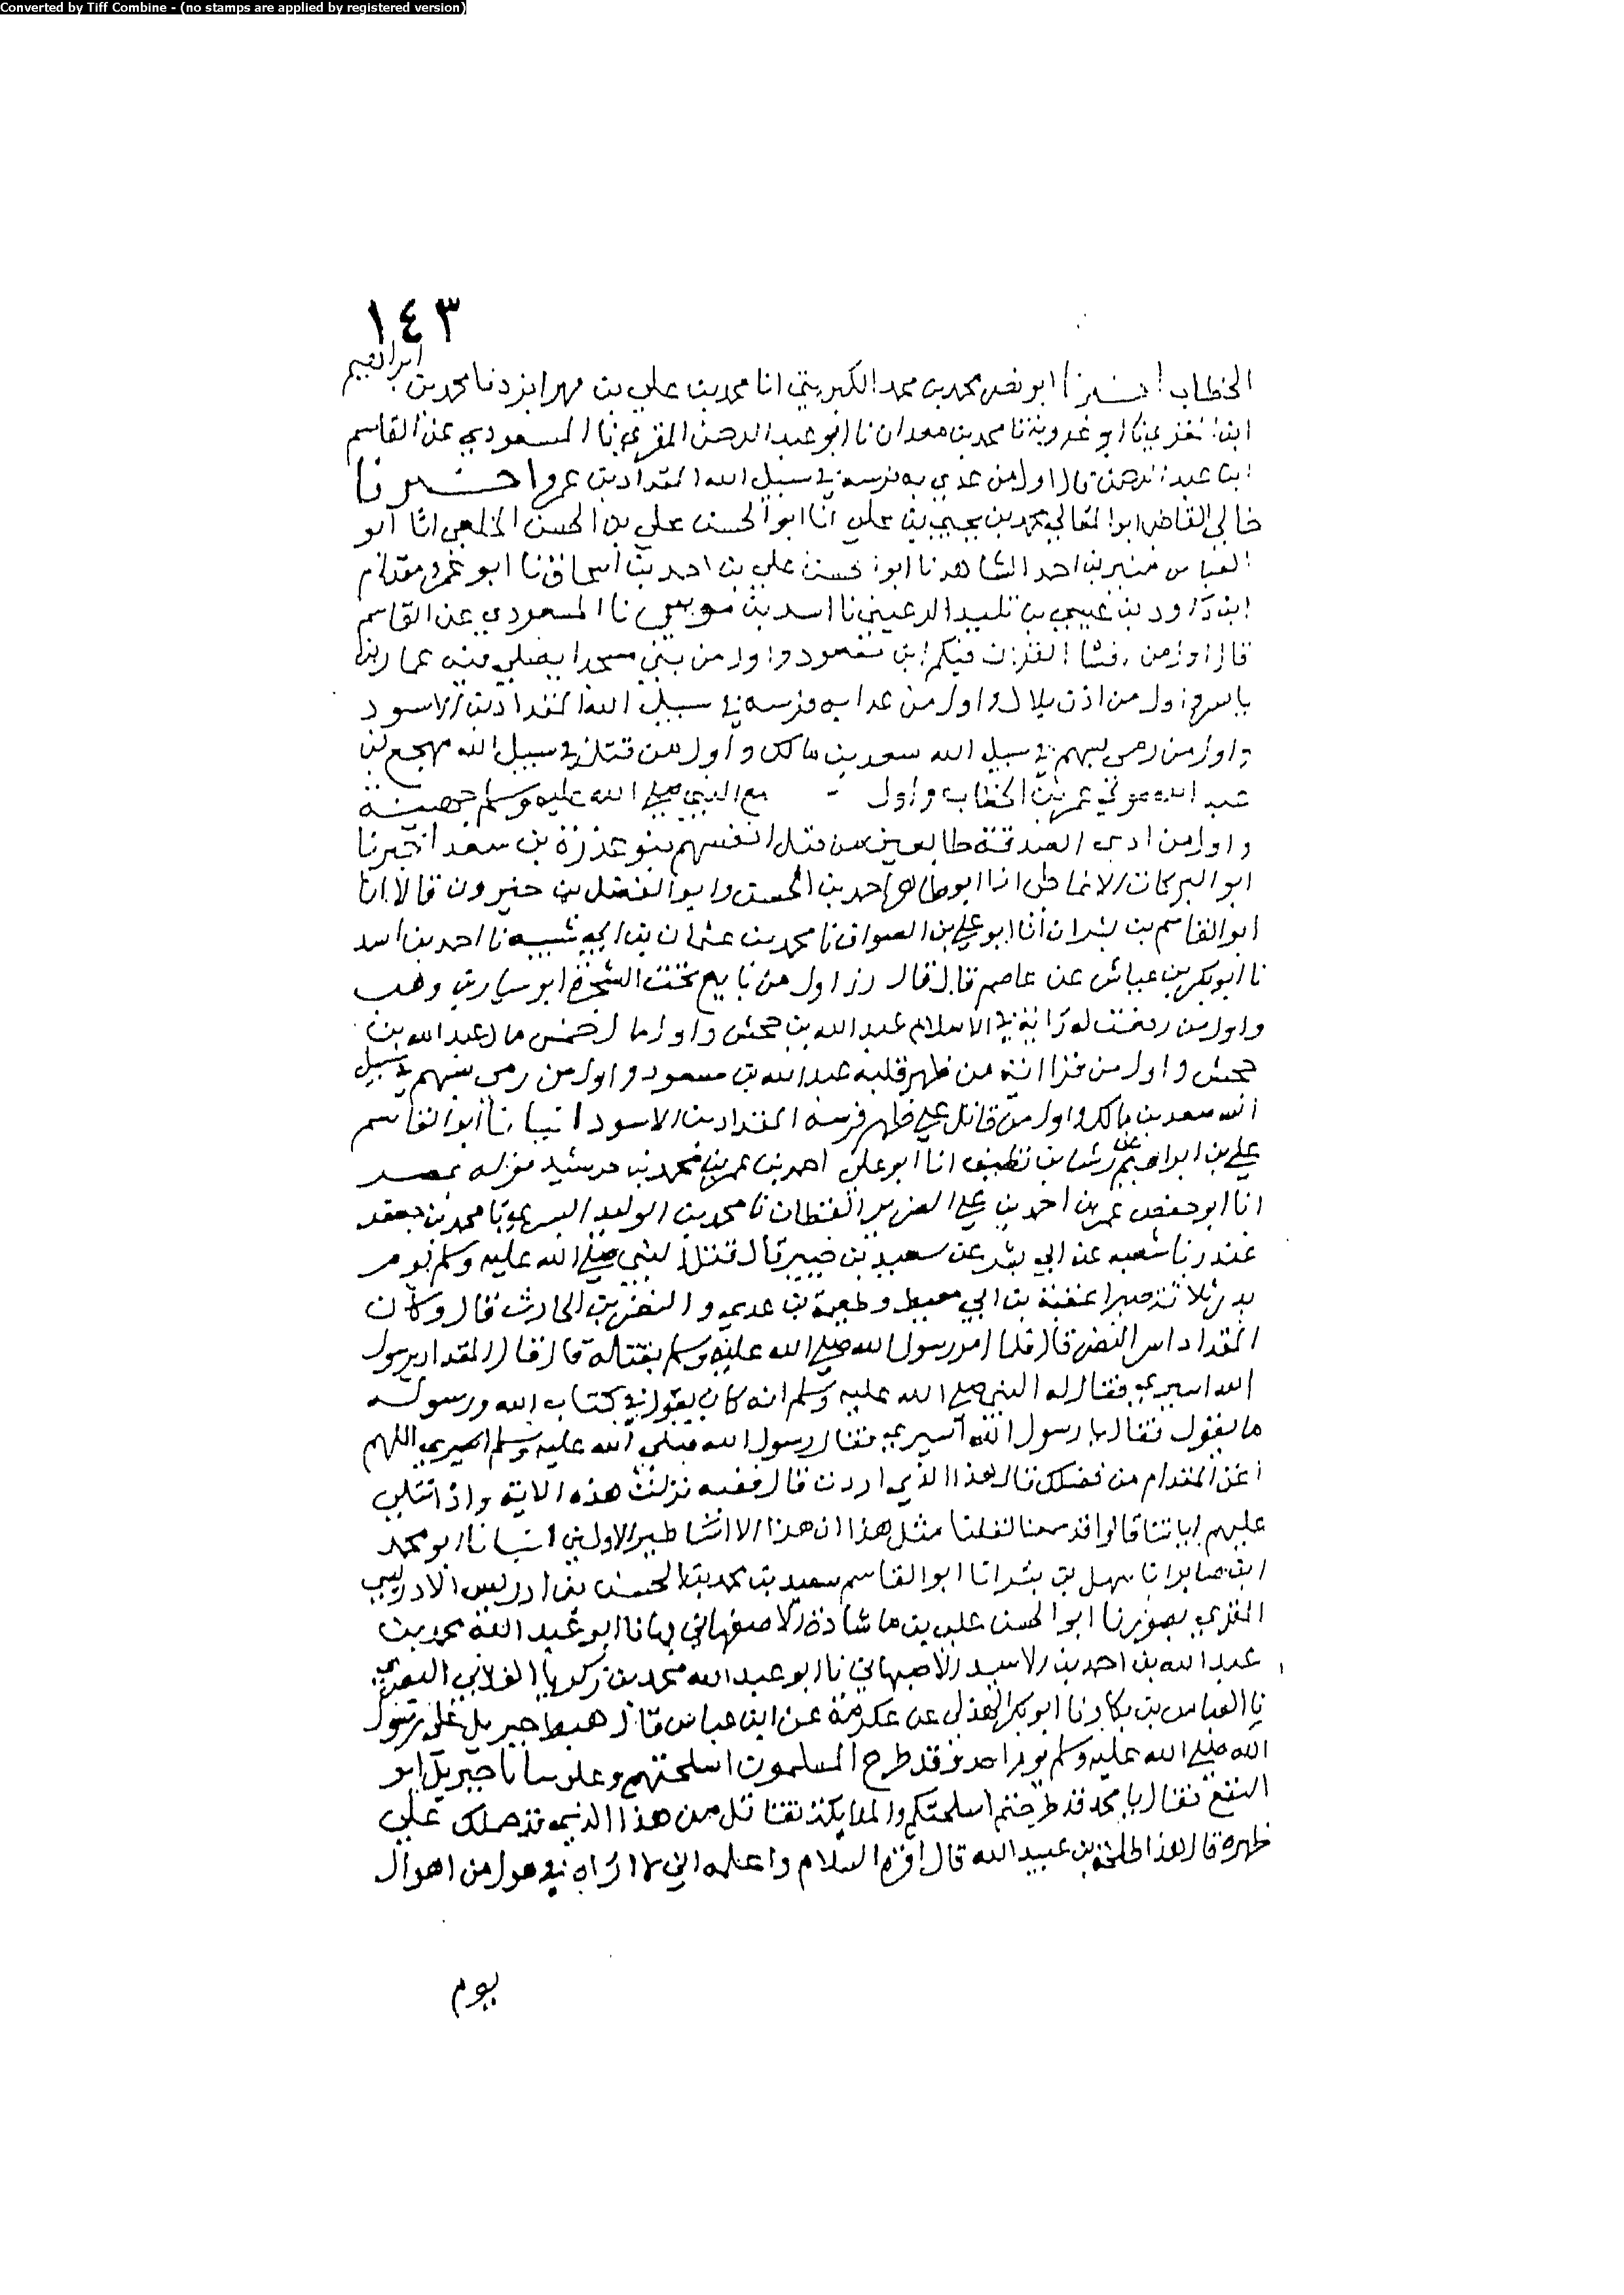 Converted by Tiff Combine - (no stamps are applied by registered version)
١٤٣
ابراهيم
الخطاب اخبرنا ابو نصر محمد بن محمد الكبريتي انا محمد بن علي بن مهرابزد نا محمد بن
ابن المقري نا ابو عروبة نا محمد بن معدان نا ابو عبد الرحمن المقرئ نا المسعودي عن القاسم
ابن عبد الرحمن قال اول من عدي به فرسه في سبيل الله المقداد بن عمرو اخبرنا
خالي القاضي ابو المعالي محمد بن يحيى بن علي انا ابو الحسن علي بن الحسن الخلعي انا ابو
العباس منير بن احمد الشاهد نا ابو الحسن علي بن احمد بن اسحاق نا ابو عمرو مقدام
ابن داود بن عيسى بن تليد الرعيني نا اسد بن موسى نا المسعودي عن القاسم
قال اول من افشا القران فيكم ابن مسعود واول من بني مسجدا يصلي فيه عمار بن
ياسر واول من اذن بلال واول من عدا به فرسه في سبيل الله المقداد بن الاسود
واول من رمى بسهم في سبيل الله سعد بن مالك واول من قتل في سبيل الله مهجع بن
عبد الله مولي عمر بن الخطاب واول - مع النبي صلى الله عليه وسلم جهينة
واول من ادى الصدقة طايعين من قبل انفسهم بنو عذرة بن سعد اخبرنا
ابو البركات الانماطي انا ابو طاهر احمد بن الحسن وابو الفضل بن خيرون قالا انا
ابو القاسم بن بشران انا ابو علي بن الصواف نا محمد بن عثمان بن ابي شيبه نا احمد بن اسد
نا ابو بكر بن عياش عن عاصم قال قال زر اول من بايع تحت الشجرة ابو سنان بن وهب
واول من رفعت له راية في الاسلام عبد الله بن جحش واول ما خمس مال عبد الله بن
جحش واول من قرا اية من ظهر قلبه عبد الله بن مسعود واول من رمى بسهم في سبيل
الله سعد بن مالك واول من قاتل علي ظهر فرسه المقداد بن الاسود انبانا ابو القاسم
علي بن ابراهيم عن رشا بن نظيف انا ابو علي احمد بن عمر بن محمد بن خرشيد قوله بمصر
انا ابو حفص عمر بن احمد بن علي القطان نا محمد بن الوليد البسري نا محمد بن جعفر
غندر نا شعبه عن ابي بشر عن سعيد بن جبير قال قتل النبي صلى الله عليه وسلم يوم
بدر ثلاثة صبرا عقبة بن ابي معيط وطعيمة بن عدي والنضر بن الحارث قال وكان
المقداد اسر النضر قال فلما امر رسول الله صلى الله عليه وسلم بقتاله قال قال المقداد يرسول
الله اسيري فقال له النبي صلى الله عليه وسلم انه كان يقول في كتاب الله ورسوله
ما يقول فقال يا رسول الله اسيري فقال رسول الله صلى الله عليه وسلم اسيري اللهم
اغن المقدام من فضلك قال هذا الذي اردت قال ففيه نزلت هذه الاية واذا تتلى
عليهم اياتنا قالوا قد سمعنا لقلنا مثل هذا ان هذا الا اساطير الاولين انبانا ابو محمد
ابن صابر انا سهل بن بشر انا ابو القاسم سعيد بن محمد بن الحسن بن ادريس الادريسي
المقري بصور نا ابو الحسن علي بن ماشاذة الاصفهاني بها نا ابو عبد الله محمد بن
عبد الله بن احمد بن الاسيد الاصبهاني نا ابو عبد الله محمد بن زكريا الغلابي البصري
نا العباس بن بكار نا ابو بكر الهذلي عن عكرمة عن ابن عباس قال هبط جبريل على رسول
الله صلى الله عليه وسلم يوم احد وقد طرح المسلمون اسلحتهم وعلى سانا جبريل ابو
النقع فقال يا محمد قد طرحتم اسلحتكم والملايكة تقاتل من هذا الذي حملك علي
ظهره قال هذا طلحة بن عبيد الله قال اقره السلام واعلمه اني لا اراه في هول من اهوال
يوم